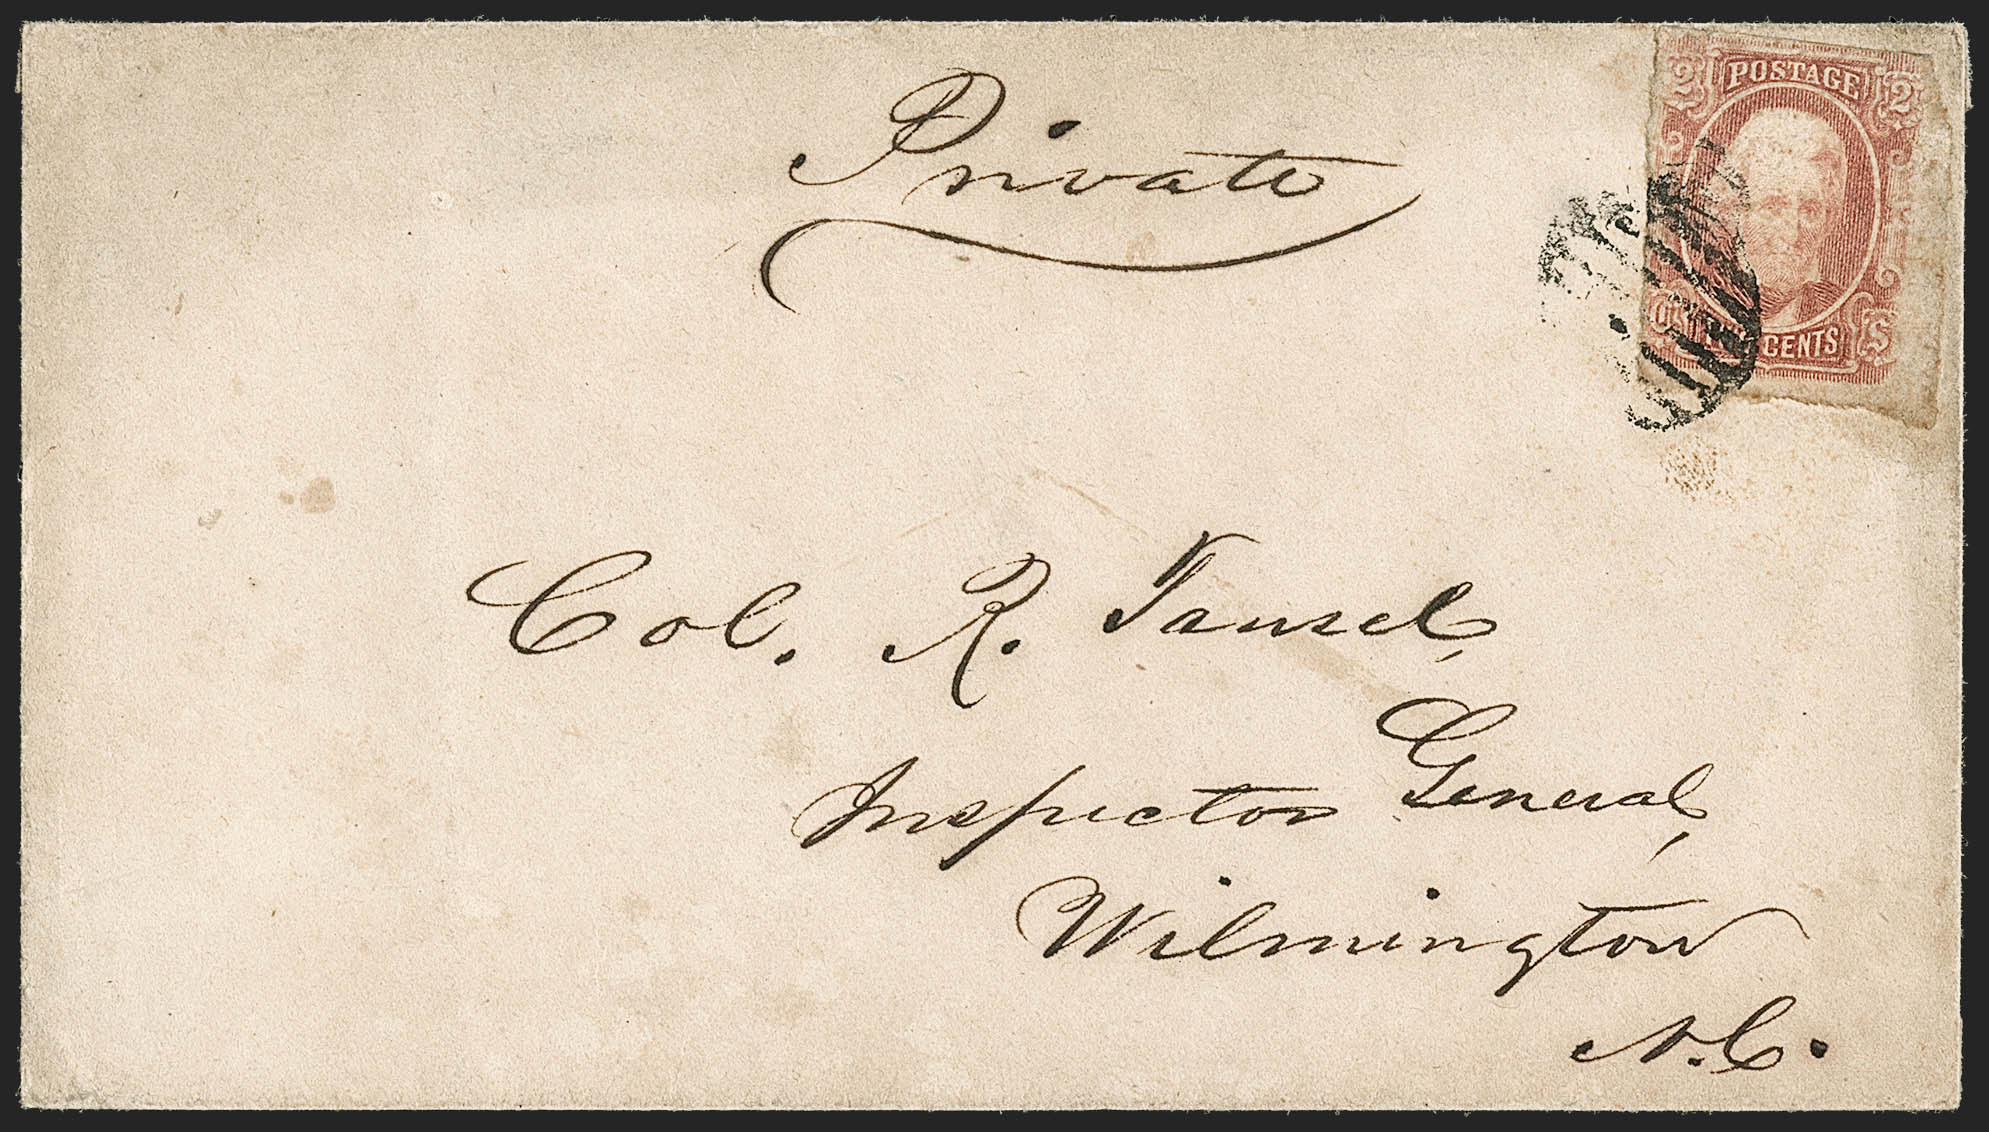 2 POSTAGE 2
Private
CENTS
Col. R. Tansel,
Inspector General,
Wilmington
N.C.